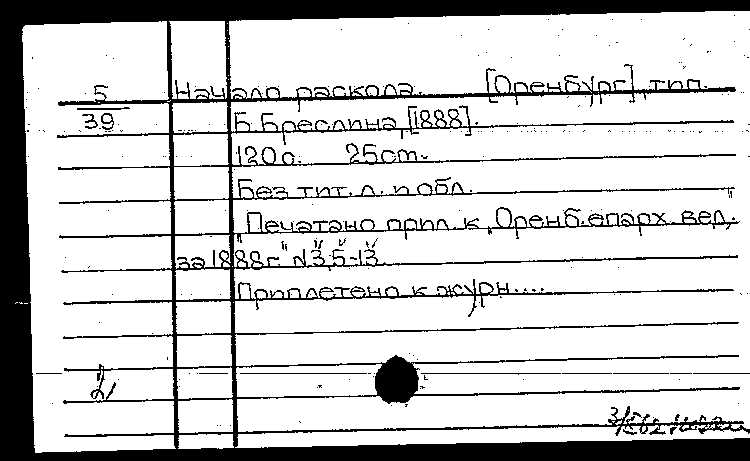 5 Начало раскола. [Оренбург], тип.
39 Б.Бреслина, [1888].
120с. 25см.
Без тит.л. и обл.
"Печатано прил. к „Оренб.епарх. вед,"
за 1888г" №3,5-13.
Приплетено к журн....